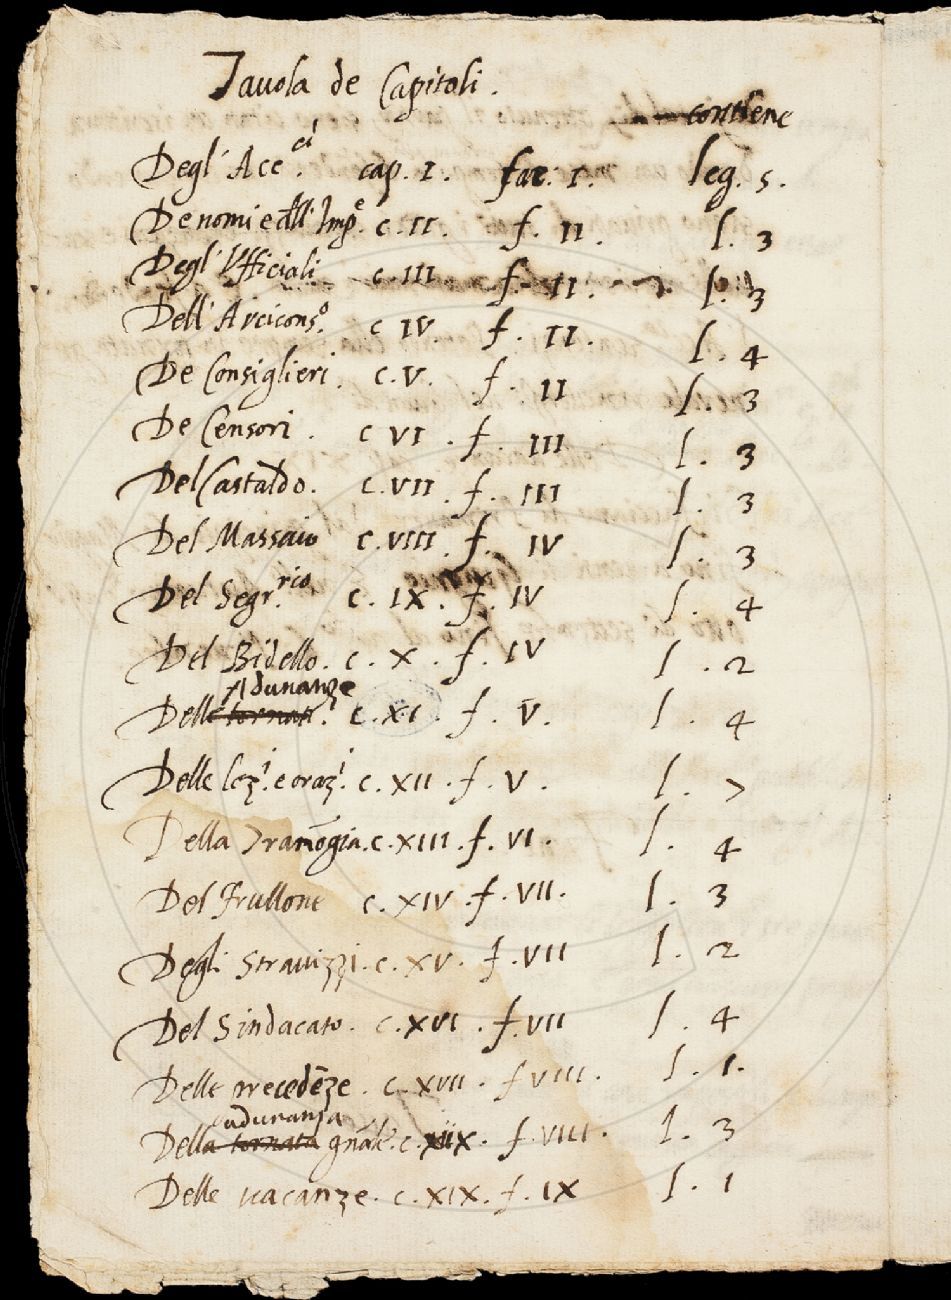 Tauola de Capitoli.
contiene
Degl' Acc.ci cap. I. fac. I. leg. 5.
De nomi e dell' Imp.e c. II. f. II. l. 3
Degl' Vfficiali c. III f. II. l. 3
Dell' Arcicons.o c IV f. II. l. 4
De Consiglieri. c. V. f. II l. 3
De Censori. c VI. f. III l. 3
Del Castaldo. c. VII. f. III l. 3
Del Massaio c. VIII. f. IV l. 3
Del Segr.rio c. IX. f. IV l. 4
Del Bidello. c. X. f. IV l. 2
Adunanze
Delle tornate. c. XI. f. V. l. 4
Delle lez.i e oraz.i. c. XII. f. V. l. 7
Della c. XIII. f. VI. l. 4
Del Frullone c. XIV. f. VII. l. 3
Degli Strauizzi. c. XV. f. VII l. 2
Del Sindacato. c. XVI. f. VII l. 4
Delle precedēze. c. XVII. f VIII. l. 1.
adunanza
Della tornata gnāle. c. XIIX. f. VIII. l. 3
Delle uacanze. c. XIX. f. IX l. 1